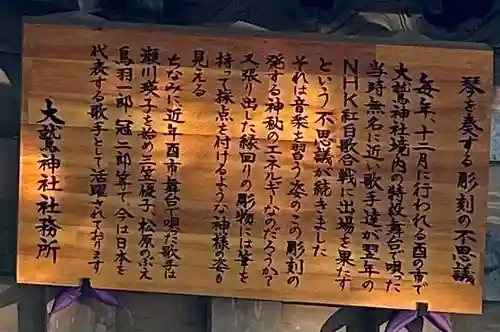 琴を奏する彫刻の不思議
毎年十二月に行われる酉の市で
大鷲神社境内の特設舞台で唄った
当時無名に近い歌手達が翌年の
NHK紅白歌合戦に出場を果たす
という不思議が続きました
それは音楽を習う姿のこの彫刻の
発する神秘のエネルギーなのだろうか?
又張り出した縁回りの彫物には筆を
持って採点を付けるような神様の姿も
見える
ちなみに近年酉市舞台で唄った歌手は
瀬川瑛子を始め三笠優子、松原のぶえ
鳥羽一郎、冠二郎等で、今は日本を
代表する歌手として活躍されております
大鷲神社社務所